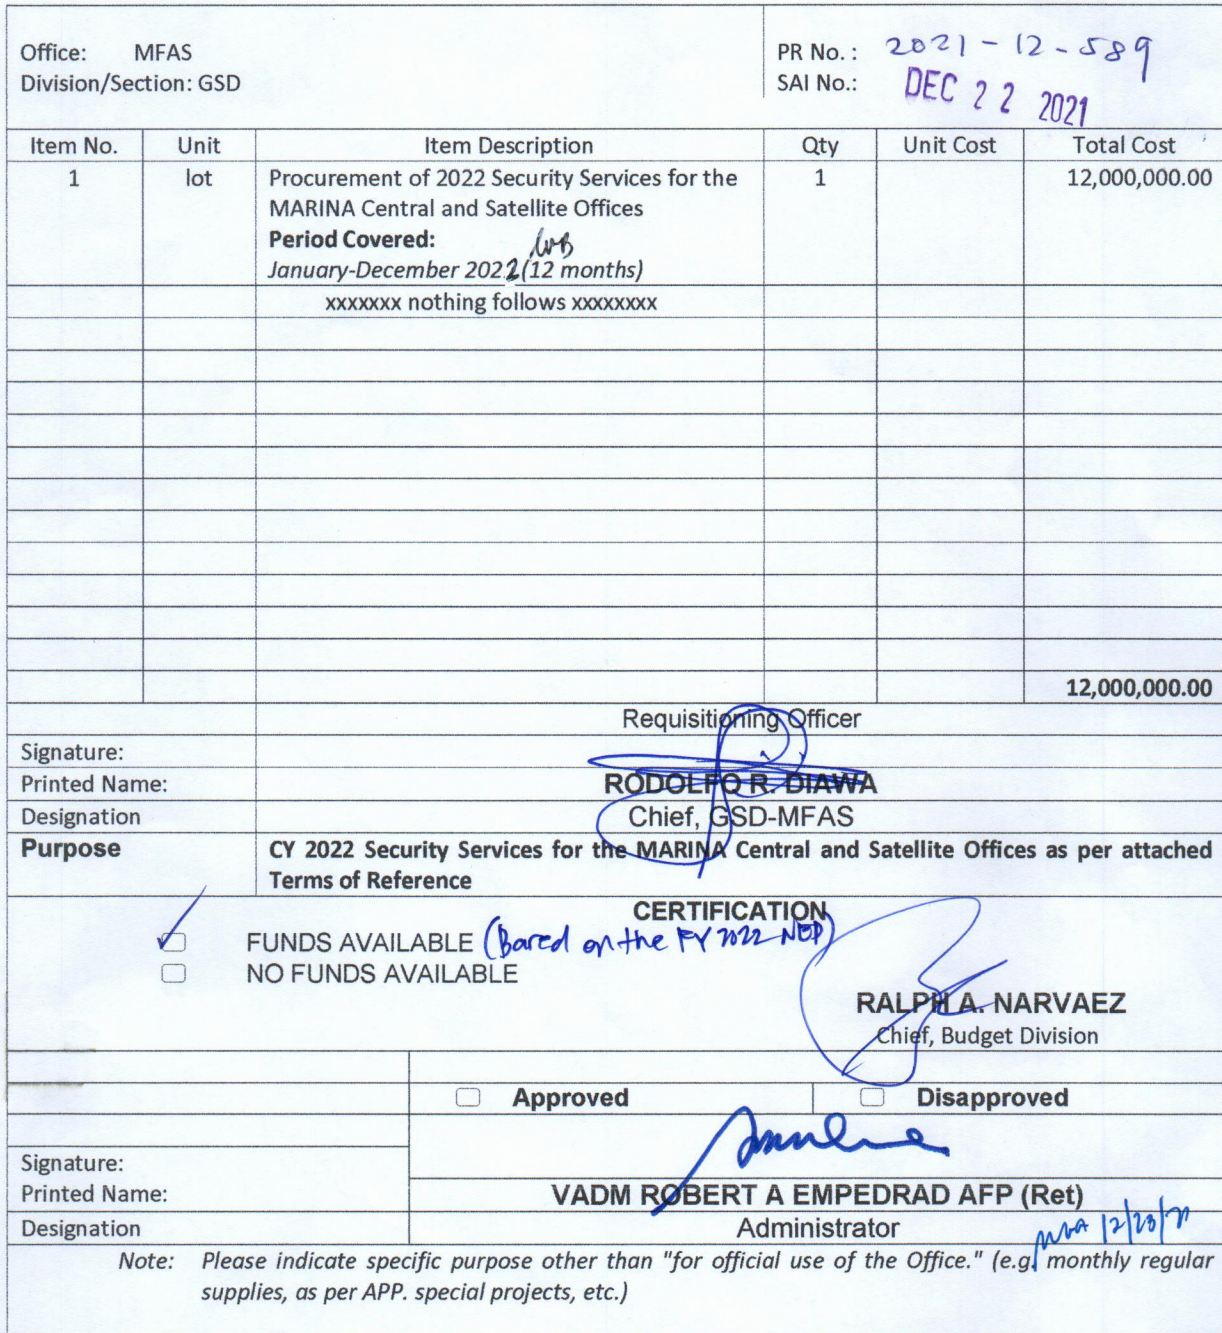 Office: MFAS
PR No. : 2021-12-589
Division/Section: GSD
SAI No.: DEC 22 2021
Item No. Unit Item Description Qty Unit Cost Total Cost
1 lot Procurement of 2022 Security Services for the 1 12,000,000.00
MARINA Central and Satellite Offices
Period Covered:
January-December 2022 (12 months)
xxxxxxx nothing follows xxxxxxxx
12,000,000.00
Requisitioning Officer
Signature:
Printed Name: RODOLFO R. DIAWA
Designation Chief, GSD-MFAS
Purpose CY 2022 Security Services for the MARINA Central and Satellite Offices as per attached
Terms of Reference
CERTIFICATION
FUNDS AVAILABLE (Based on the FY 2022 NEP)
NO FUNDS AVAILABLE
RALPH A. NARVAEZ
Chief, Budget Division
Approved Disapproved
Signature:
Printed Name: VADM ROBERT A EMPEDRAD AFP (Ret)
Designation Administrator
12/23/21
Note: Please indicate specific purpose other than "for official use of the Office." (e.g. monthly regular
supplies, as per APP. special projects, etc.)